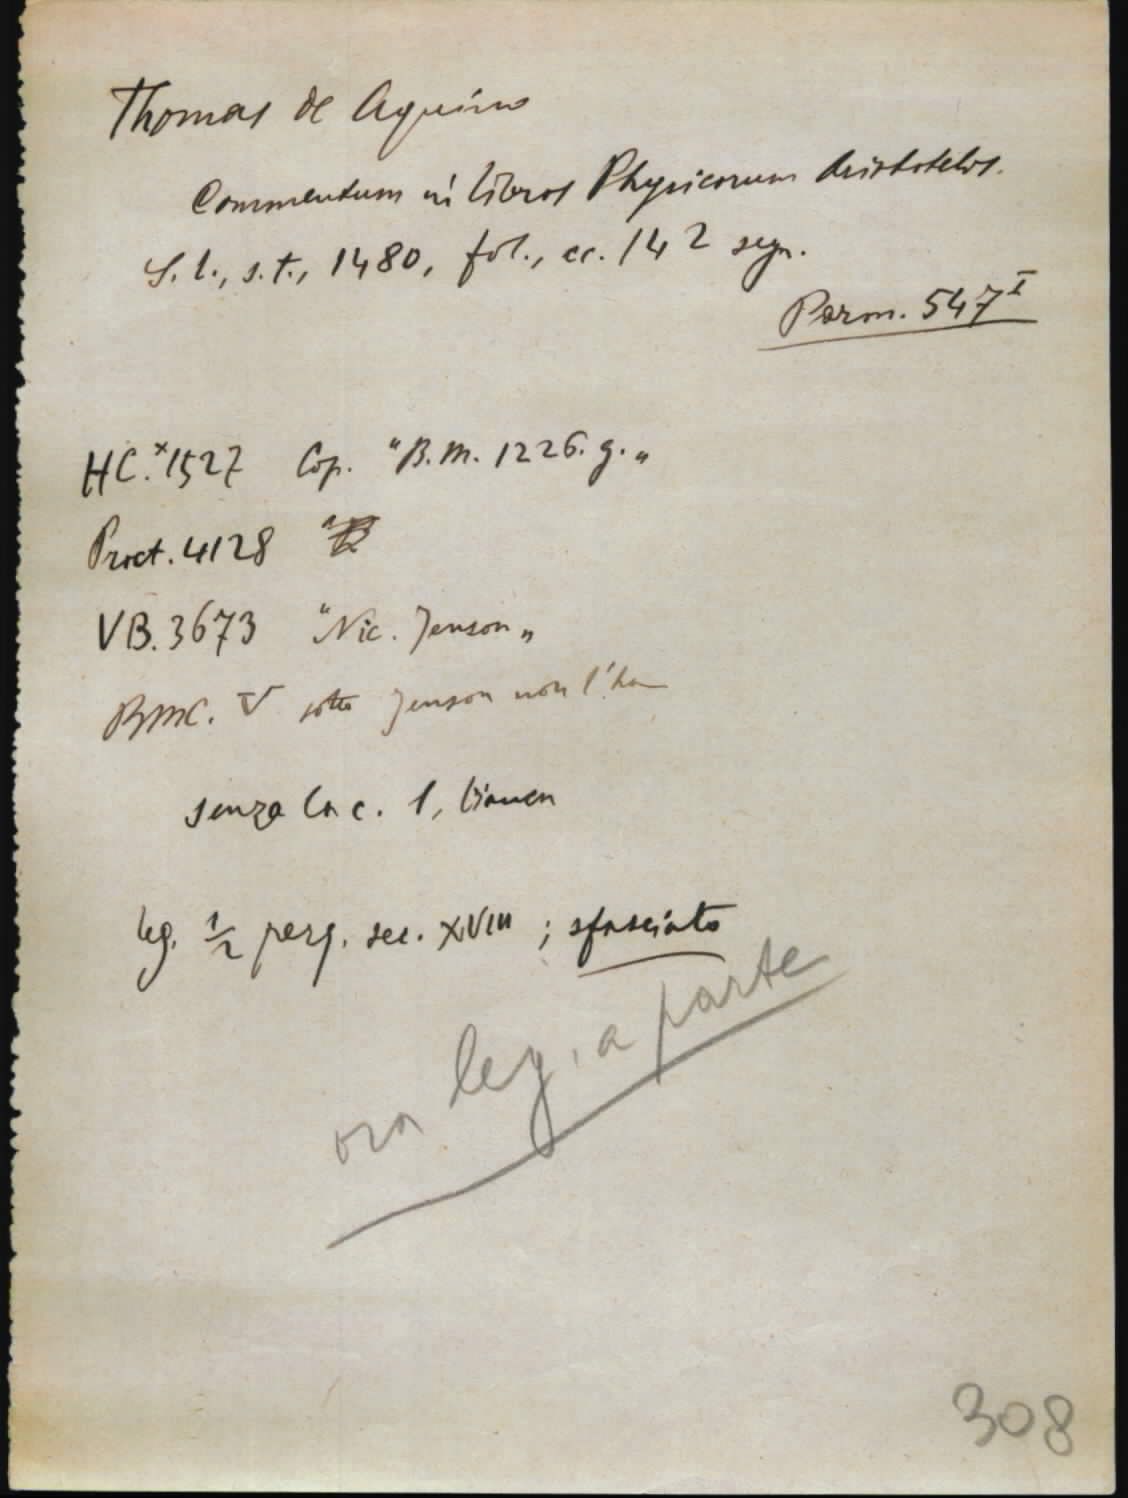 Thomas de Aquino
Commentum in libros Physicorum Aristotelis.
S. l., s. t., 1480, fol., cc. 142 segn.
Parm. 547 I
HC.x1527 Cop. "B.M. 1226. g."
Proct. 4128
VB. 3673 "Nic. Jenson"
BMC. V sotto Jenson non l'ha
senza la c. 1, bianca
leg. 1/2 perg. sec. XVIII ; sfasciato
ora leg. a parte
308